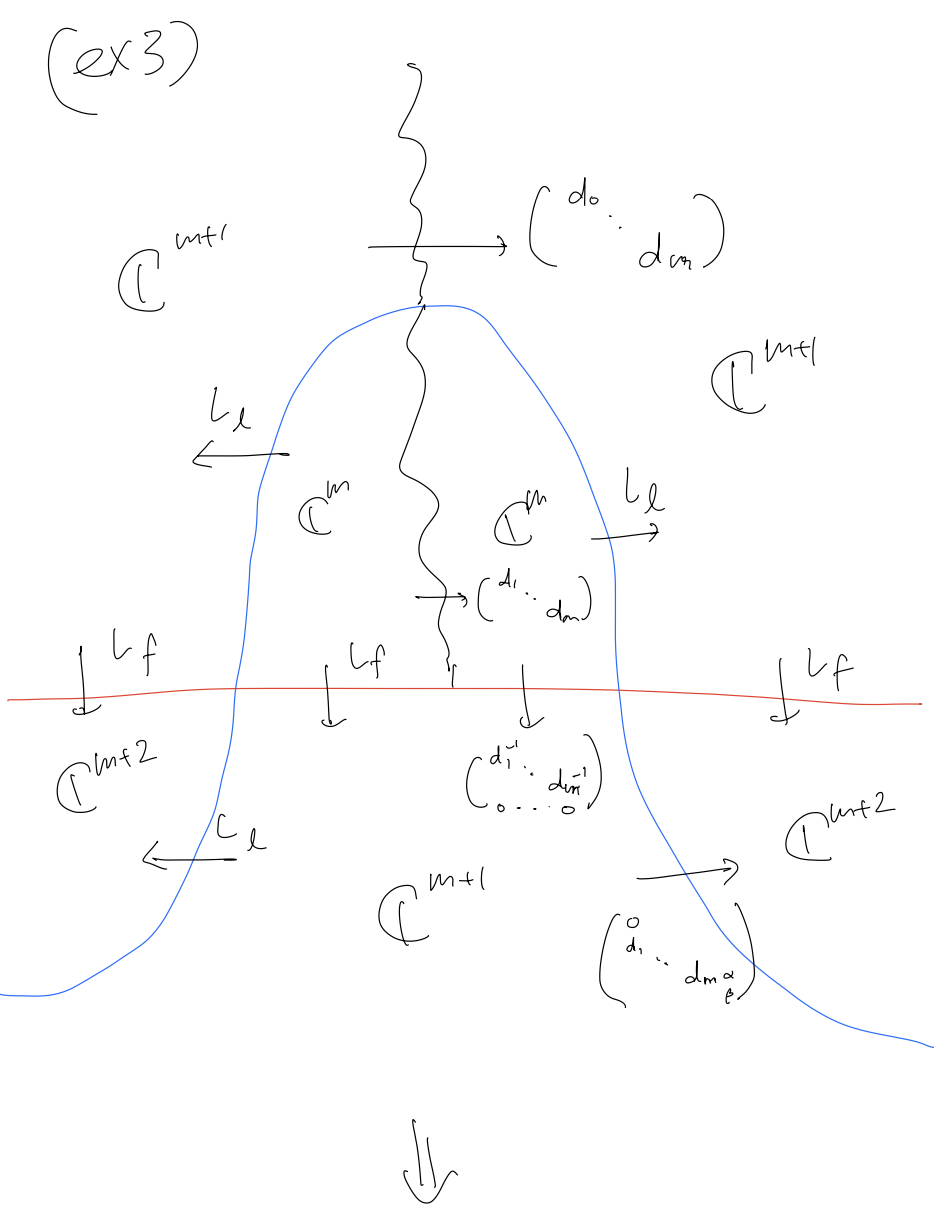 (ex3)
ℂ^{m+1}
( d₀ ⋱ d_m )
ℂ^{m+1}
ι_ℓ
ℂ^m
ℂ^m
ι_ℓ
( d₁ ⋱ d_m )
ι_f
ι_f
ι_f
ℂ^{m+2}
( d₁⁻¹ ⋱ d_m⁻¹
0 ⋯ 0 )
ℂ^{m+2}
ι_ℓ
ℂ^{m+1}
( 0
d₁ ⋱ d_m α
β )
⇓